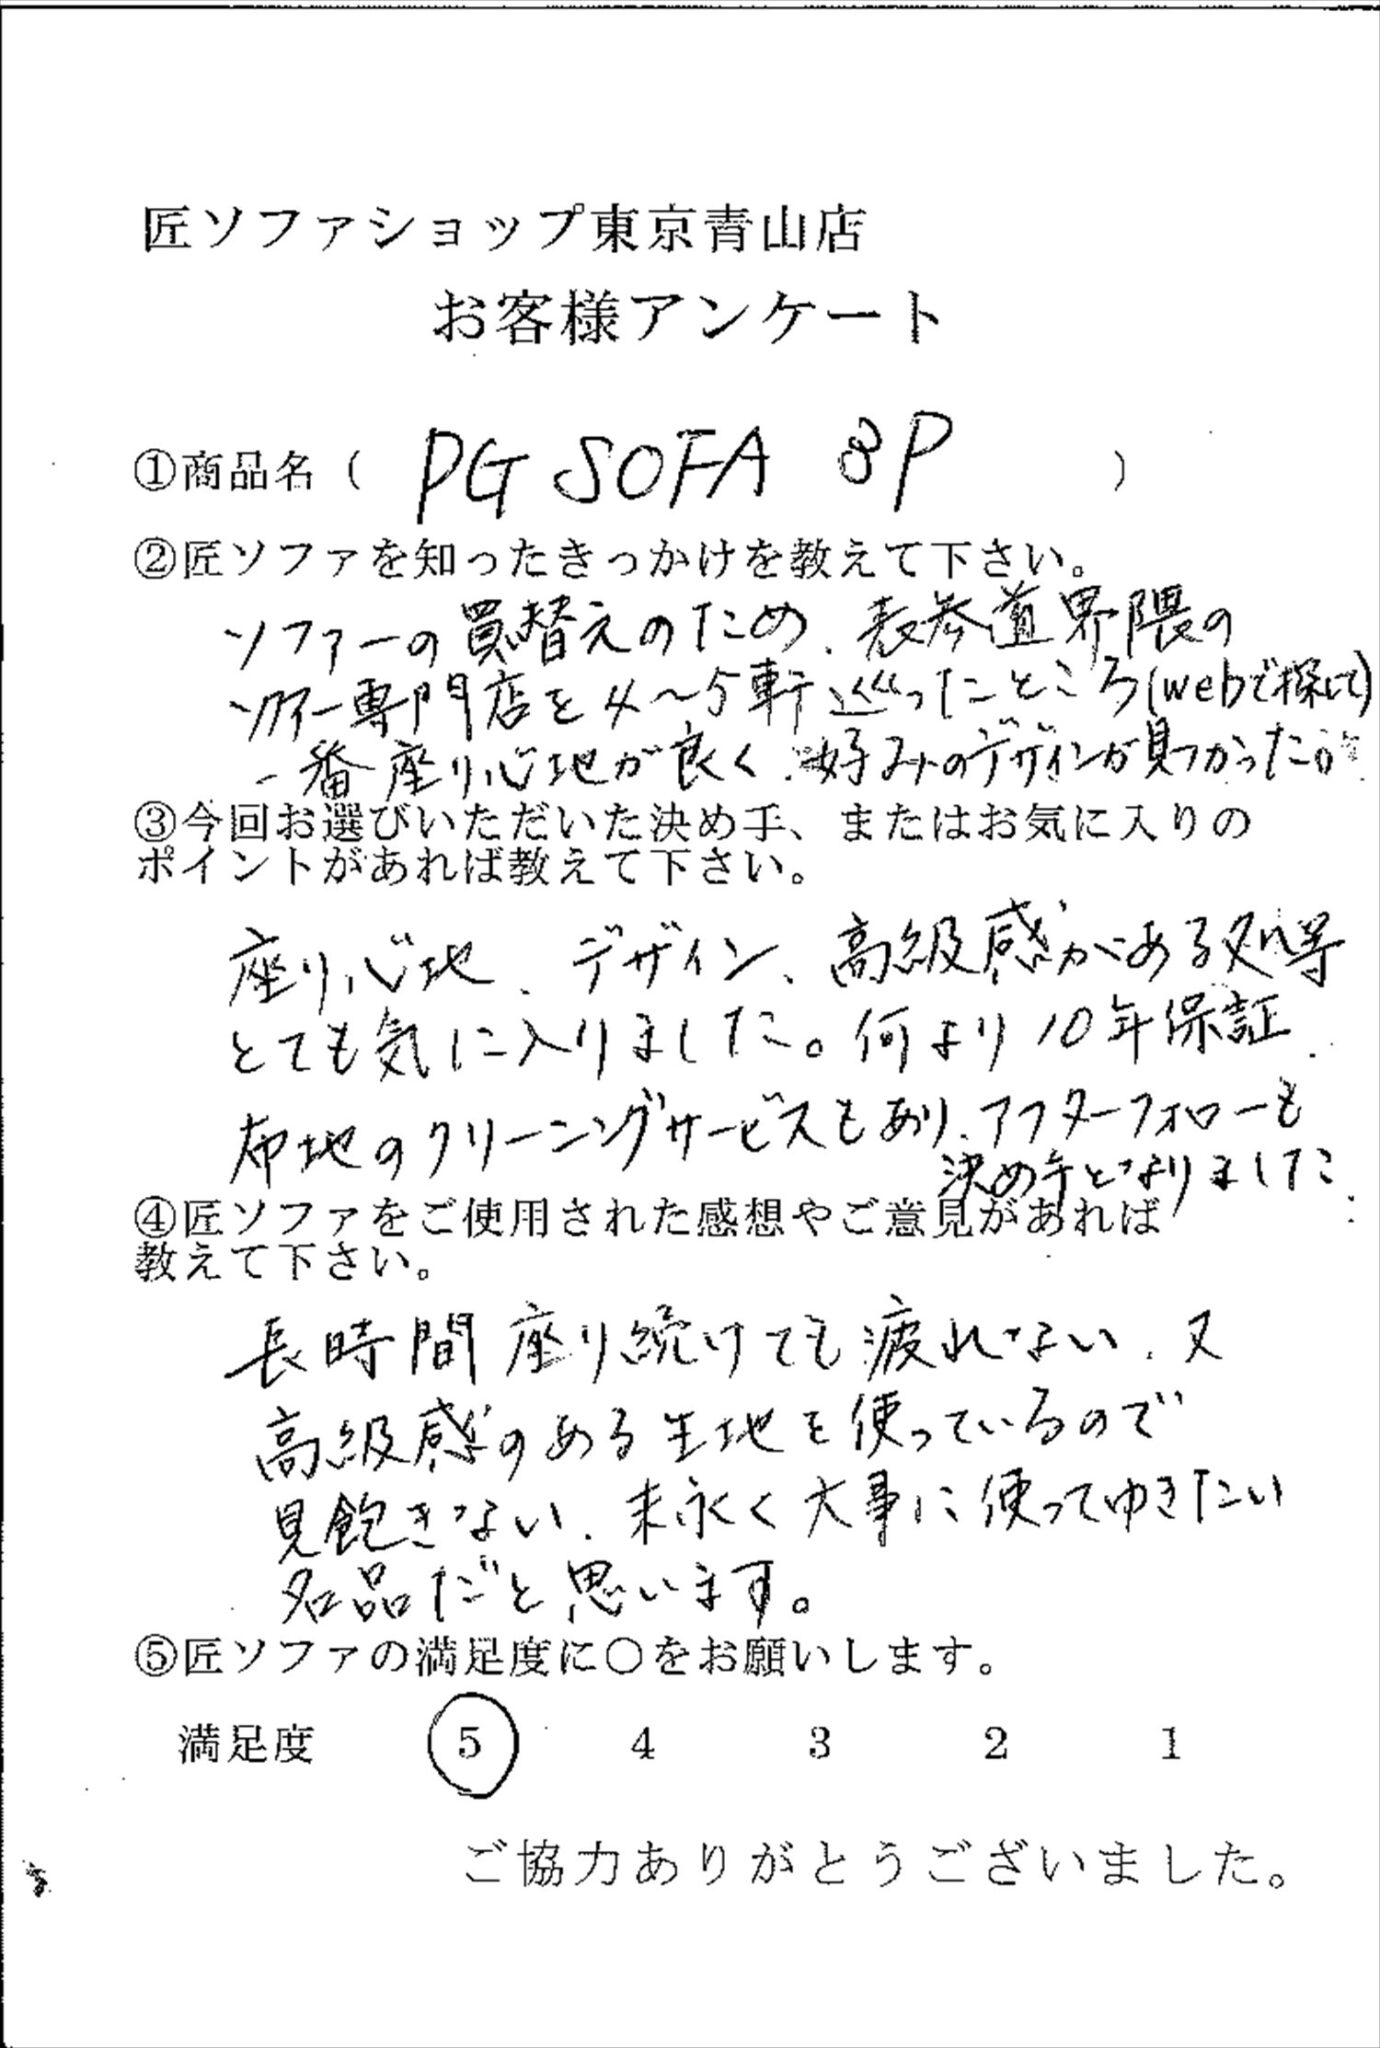 匠ソファショップ東京青山店
お客様アンケート
①商品名( PG SOFA 3P )
②匠ソファを知ったきっかけを教えて下さい。
ソファーの買替えのため、表参道界隈の
ソファー専門店を4〜5軒巡ったところ(webで探して)
一番座り心地が良く、好みのデザインが見つかった。
③今回お選びいただいた決め手、またはお気に入りの
ポイントがあれば教えて下さい。
座り心地、デザイン、高級感がある処等
とても気に入りました。何より10年保証、
布地のクリーニングサービスもあり、アフターフォローも
決め手となりました。
④匠ソファをご使用された感想やご意見があれば
教えて下さい。
長時間座り続けても疲れない、又
高級感のある生地を使っているので
見飽きない、末永く大事に使ってゆきたい
名品だと思います。
⑤匠ソファの満足度に○をお願いします。
満足度 5 4 3 2 1
ご協力ありがとうございました。